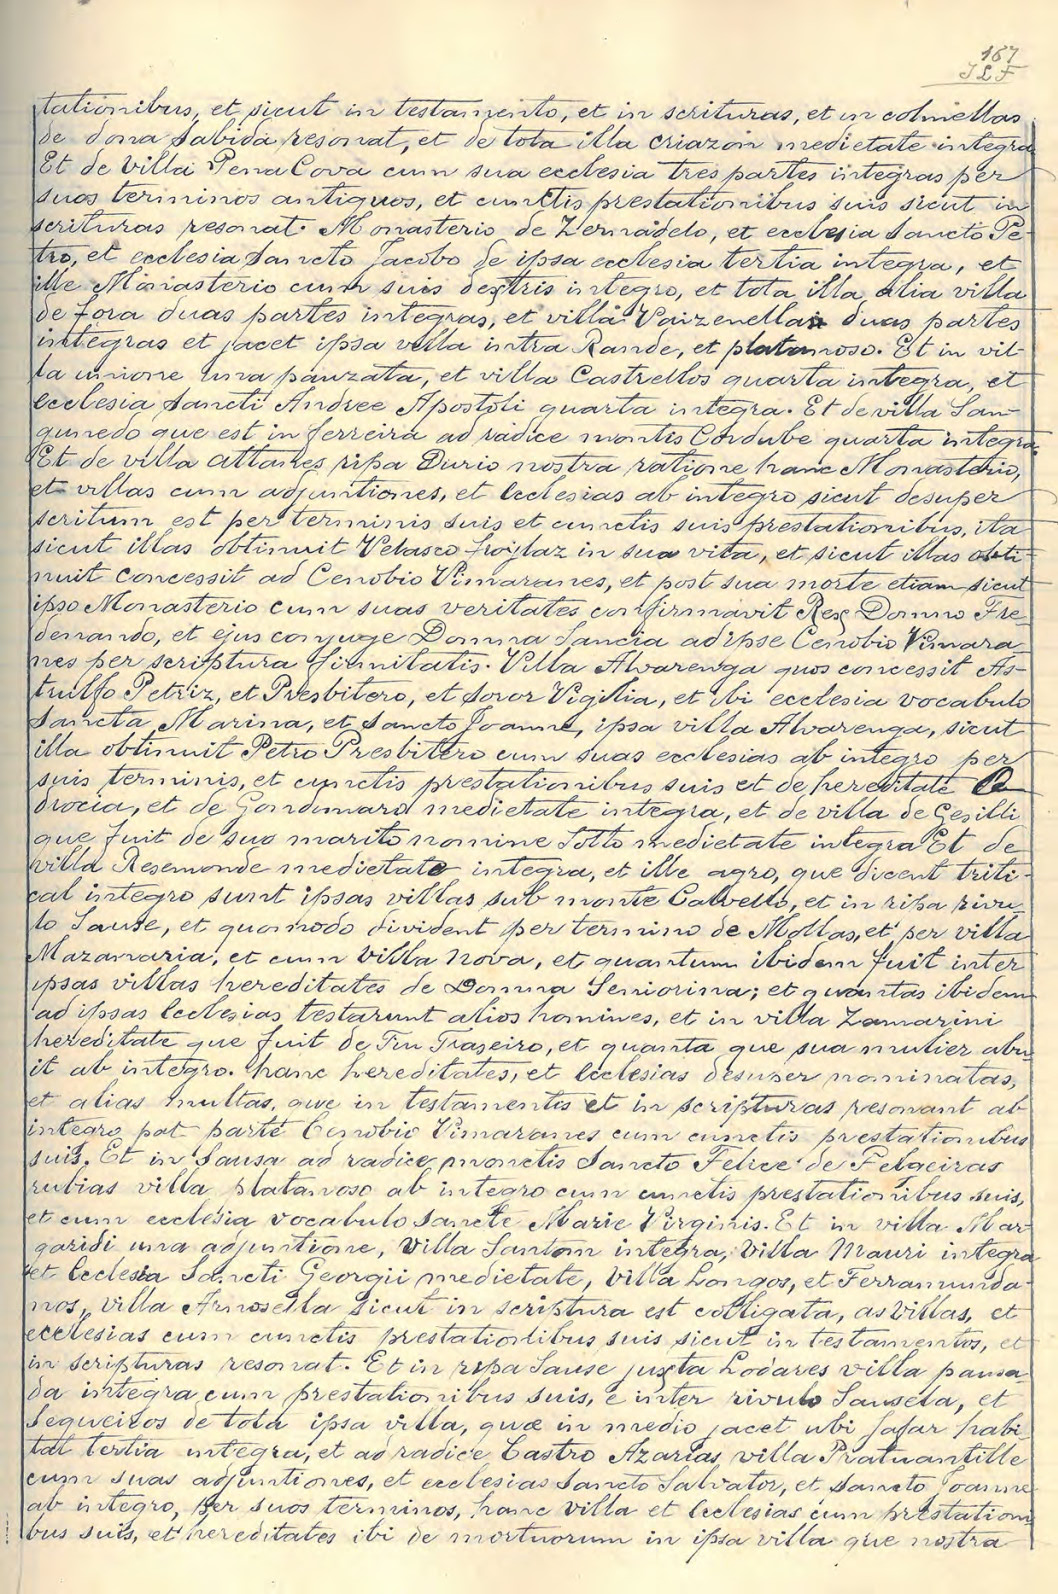 167
JLF
tationibus, et sicut in testamento, et in scrituras, et in colmellas
de dona Sabida resonat, et de tota illa criazon medietate integra
Et de Villa Pena Cova cum sua ecclesia tres partes integras per
suos terminos antiquos, et cunctis prestationibus suis sicut in
scrituras resonat. Monasterio de Zernadelo, et ecclesia Sancto Pe-
tro, et ecclesia Sancto Jacobo de ipsa ecclesia tertia integra, et
ille Monasterio cum suis dextris integro, et tota illa alia villa
de fora duas partes integras, et villa Vaizenellas duas partes
integras et jacet ipsa villa intra Rande, et platanoso. Et in vil-
la unione una pauzata, et villa Castrellos quarta integra, et
ecclesia Sancti Andree Apostoli quarta integra. Et de villa San-
guinedo que est in ferreira ad radice montis Cordube quarta integra
Et de villa Attanes ripa Durio nostra ratione hanc Monasterio,
et villas cum adjuntiones, et Ecclesias ab integro sicut desuper
scritum est per terminis suis et cunctis suis prestationibus, ita
sicut illas obtinuit Velasco froylaz in sua vita, et sicut illas obti-
nuit concessit ad Cenobio Vimaranes, et post sua morte etiam sicut
ipso Monasterio cum suas veritates confirmavit Rex Domno Fre-
denando, et ejus conjuge Domna Sancia ad ipse Cenobio Vimara-
nes per scriptura firmitatis. Villa Alvarenga quos concessit As-
trulfo Petriz, et Presbitero, et Soror Vigilia, et ibi ecclesia vocabulo
Sancta Marina, et Sancto Joanne, ipsa villa Alvarenga, sicut
illa obtinuit Petro Presbitero cum suas ecclesias ab integro per
suis terminis, et cunctis prestationibus suis et de hereditate
drocia, et de Gondemaro medietate integra, et de villa de Gesilli
que fuit de suo marito nomine Sotto medietate integra Et de
villa Resemonde medietate integra, et ille agro, que dicent triti-
cal integro sunt ipsas villas sub monte Calvello, et in ripa rivu-
lo Sause, et quomodo divident per termino de Mollas, et per villa
Mazanaria, et cum Villa nova, et quantum ibidem fuit inter
ipsas villas hereditates de Domna Seniorina; et quantas ibidem
ad ipsas Ecclesias testarunt alios homines, et in villa Zamarini
hereditate que fuit de Traseiro, et quanta que sua mulier abu-
it ab integro. hanc hereditates, et Ecclesias desuper nominatas,
et alias multas, que in testamentis et in scripturas resonant ab
integro pot parte Cenobio Vimaranes cum cunctis prestationibus
suis. Et in Sausa ad radice monctis Sancto Felice de Felgeiras
rubias villa platanoso ab integro cum cunctis prestationibus suis,
et cum ecclesia vocabulo Sancte Marie Virginis. Et in villa Mar-
garidi una adjuntione, Villa Santom integra, Villa Mauri integra
et Ecclesia Sancti Georgii medietate, Villa Longos, et Ferramunda-
nos, villa Arnosella sicut in scriptura est colligata, as villas, et
ecclesias cum cunctis prestationibus suis sicut in testamentos, et
in scripturas resonat. Et in ripa Sause juxta Lodares villa pausa-
da integra cum prestationibus suis, e inter rivulo Sausela, et
Sequeiros de tota ipsa villa, quæ in medio jacet ubi Jafar habi-
tat tertia integra, et ad radice Castro Azarias, villa Pratuantille
cum suas adjuntiones, et ecclesias Sancto Salvator, et Sancto Joanne
ab integro, per suos terminos, hanc villa et Ecclesias cum prestationi-
bus suis, et hereditates ibi de mortuorum in ipsa villa que nostra